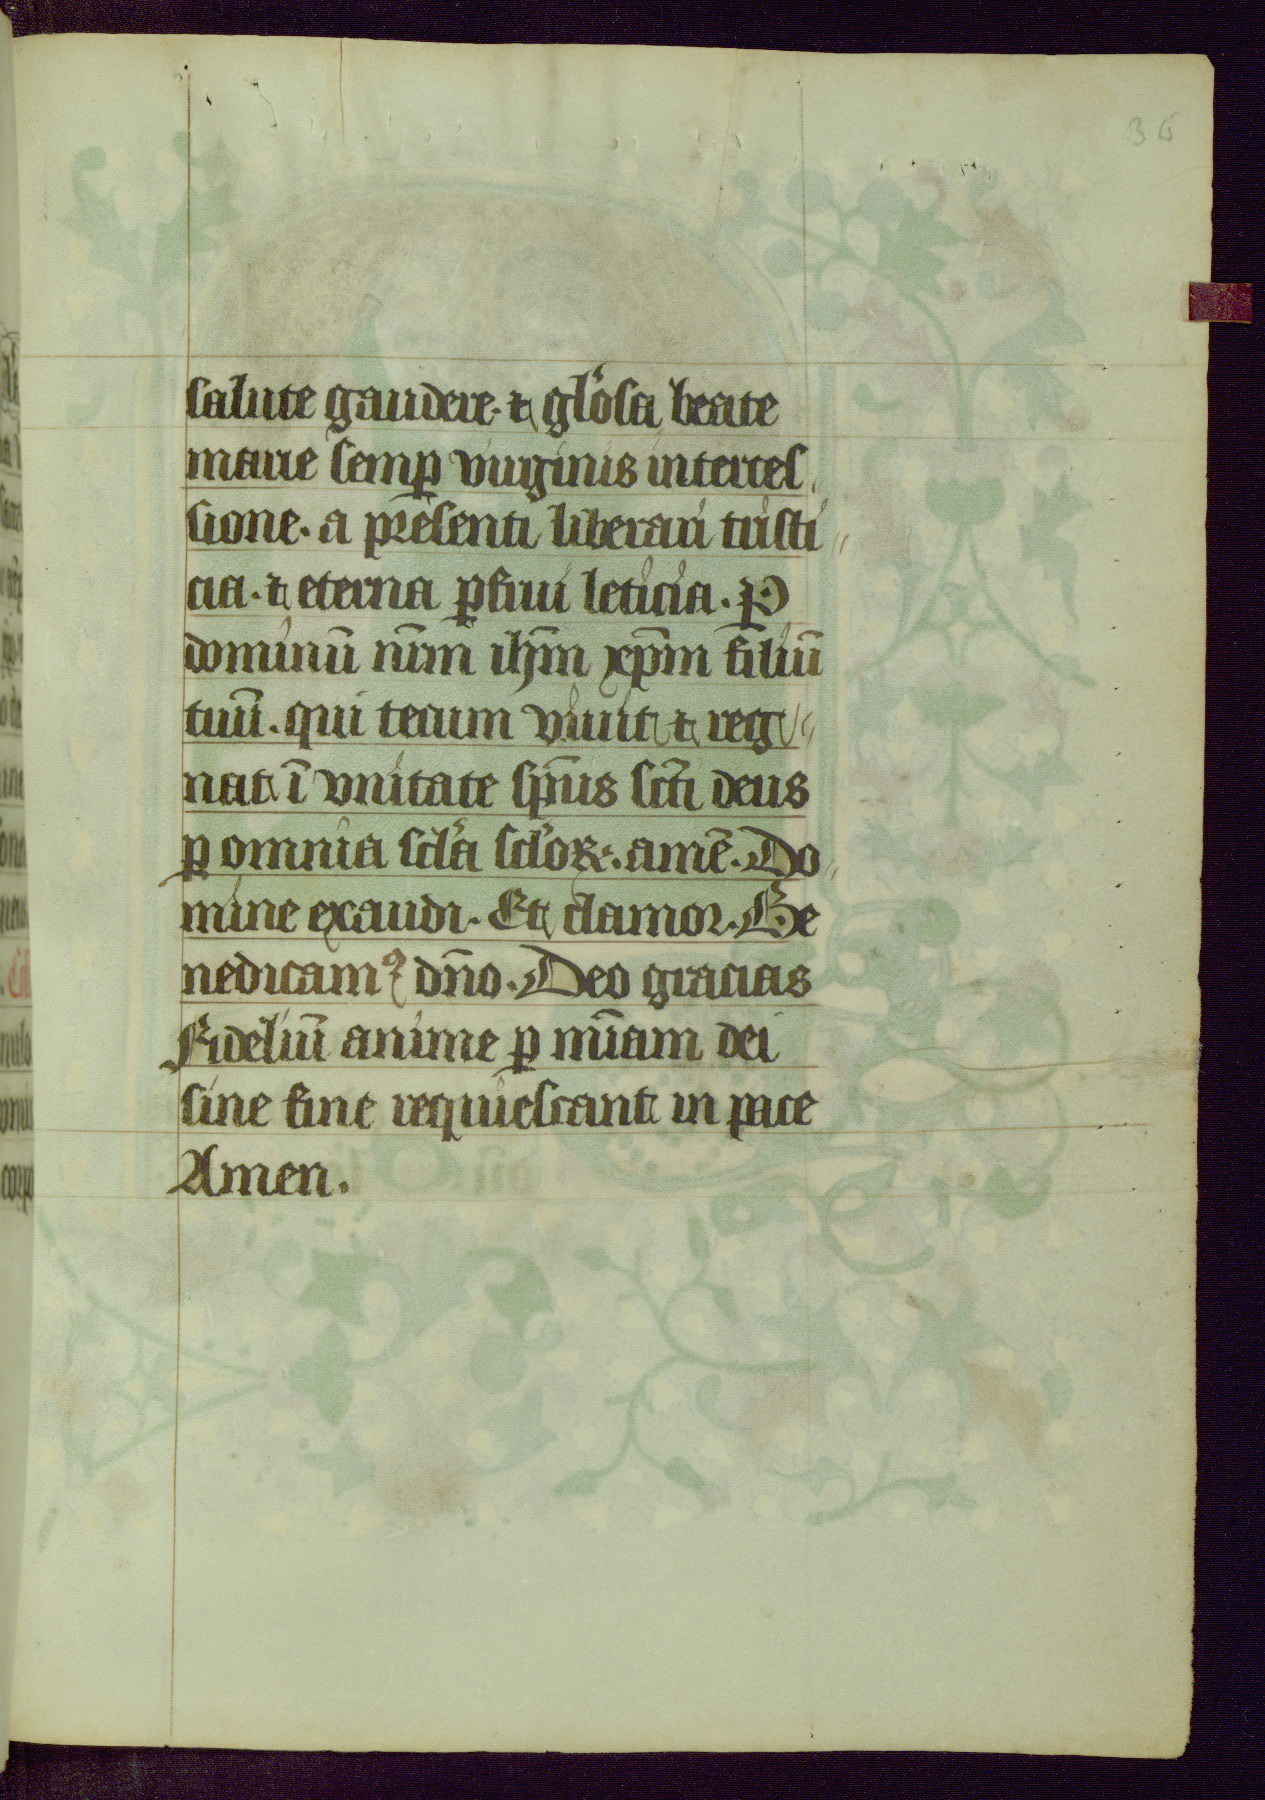 36
salute gaudere. ⁊ gl'osa beate
marie semꝑ virginis interces
sione. a presenti liberari tristi
cia. ⁊ eterna ꝑfrui leticia. P
dominū nr̄m ih̄m xp̄m filiū
tuū. qui tecum viuit ⁊ reg
nat ī vnitate sp̄us sc̄ti deus
ꝑ omnia scl'a scl'oꝝ. amē. Do
mine exaudi. Et clamor. Be
nedicamꝰ dn̄o. Deo gracias
Fideliū anime ꝑ mīam dei
sine fine requiescant in pace
Amen.